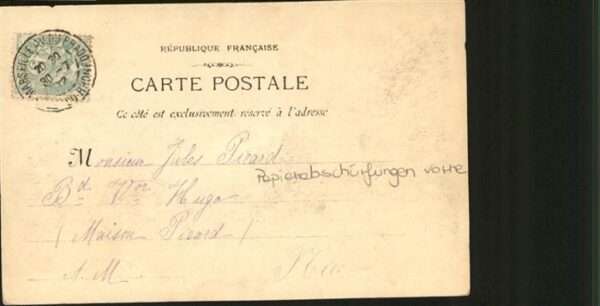 RÉPUBLIQUE FRANÇAISE
CARTE POSTALE
Ce côté est exclusivement réservé à l'adresse
Monsieur Jules Picard
Papierabschürfungen vorne
Bd Vor Hugo
(Maison Picard)
A. M.